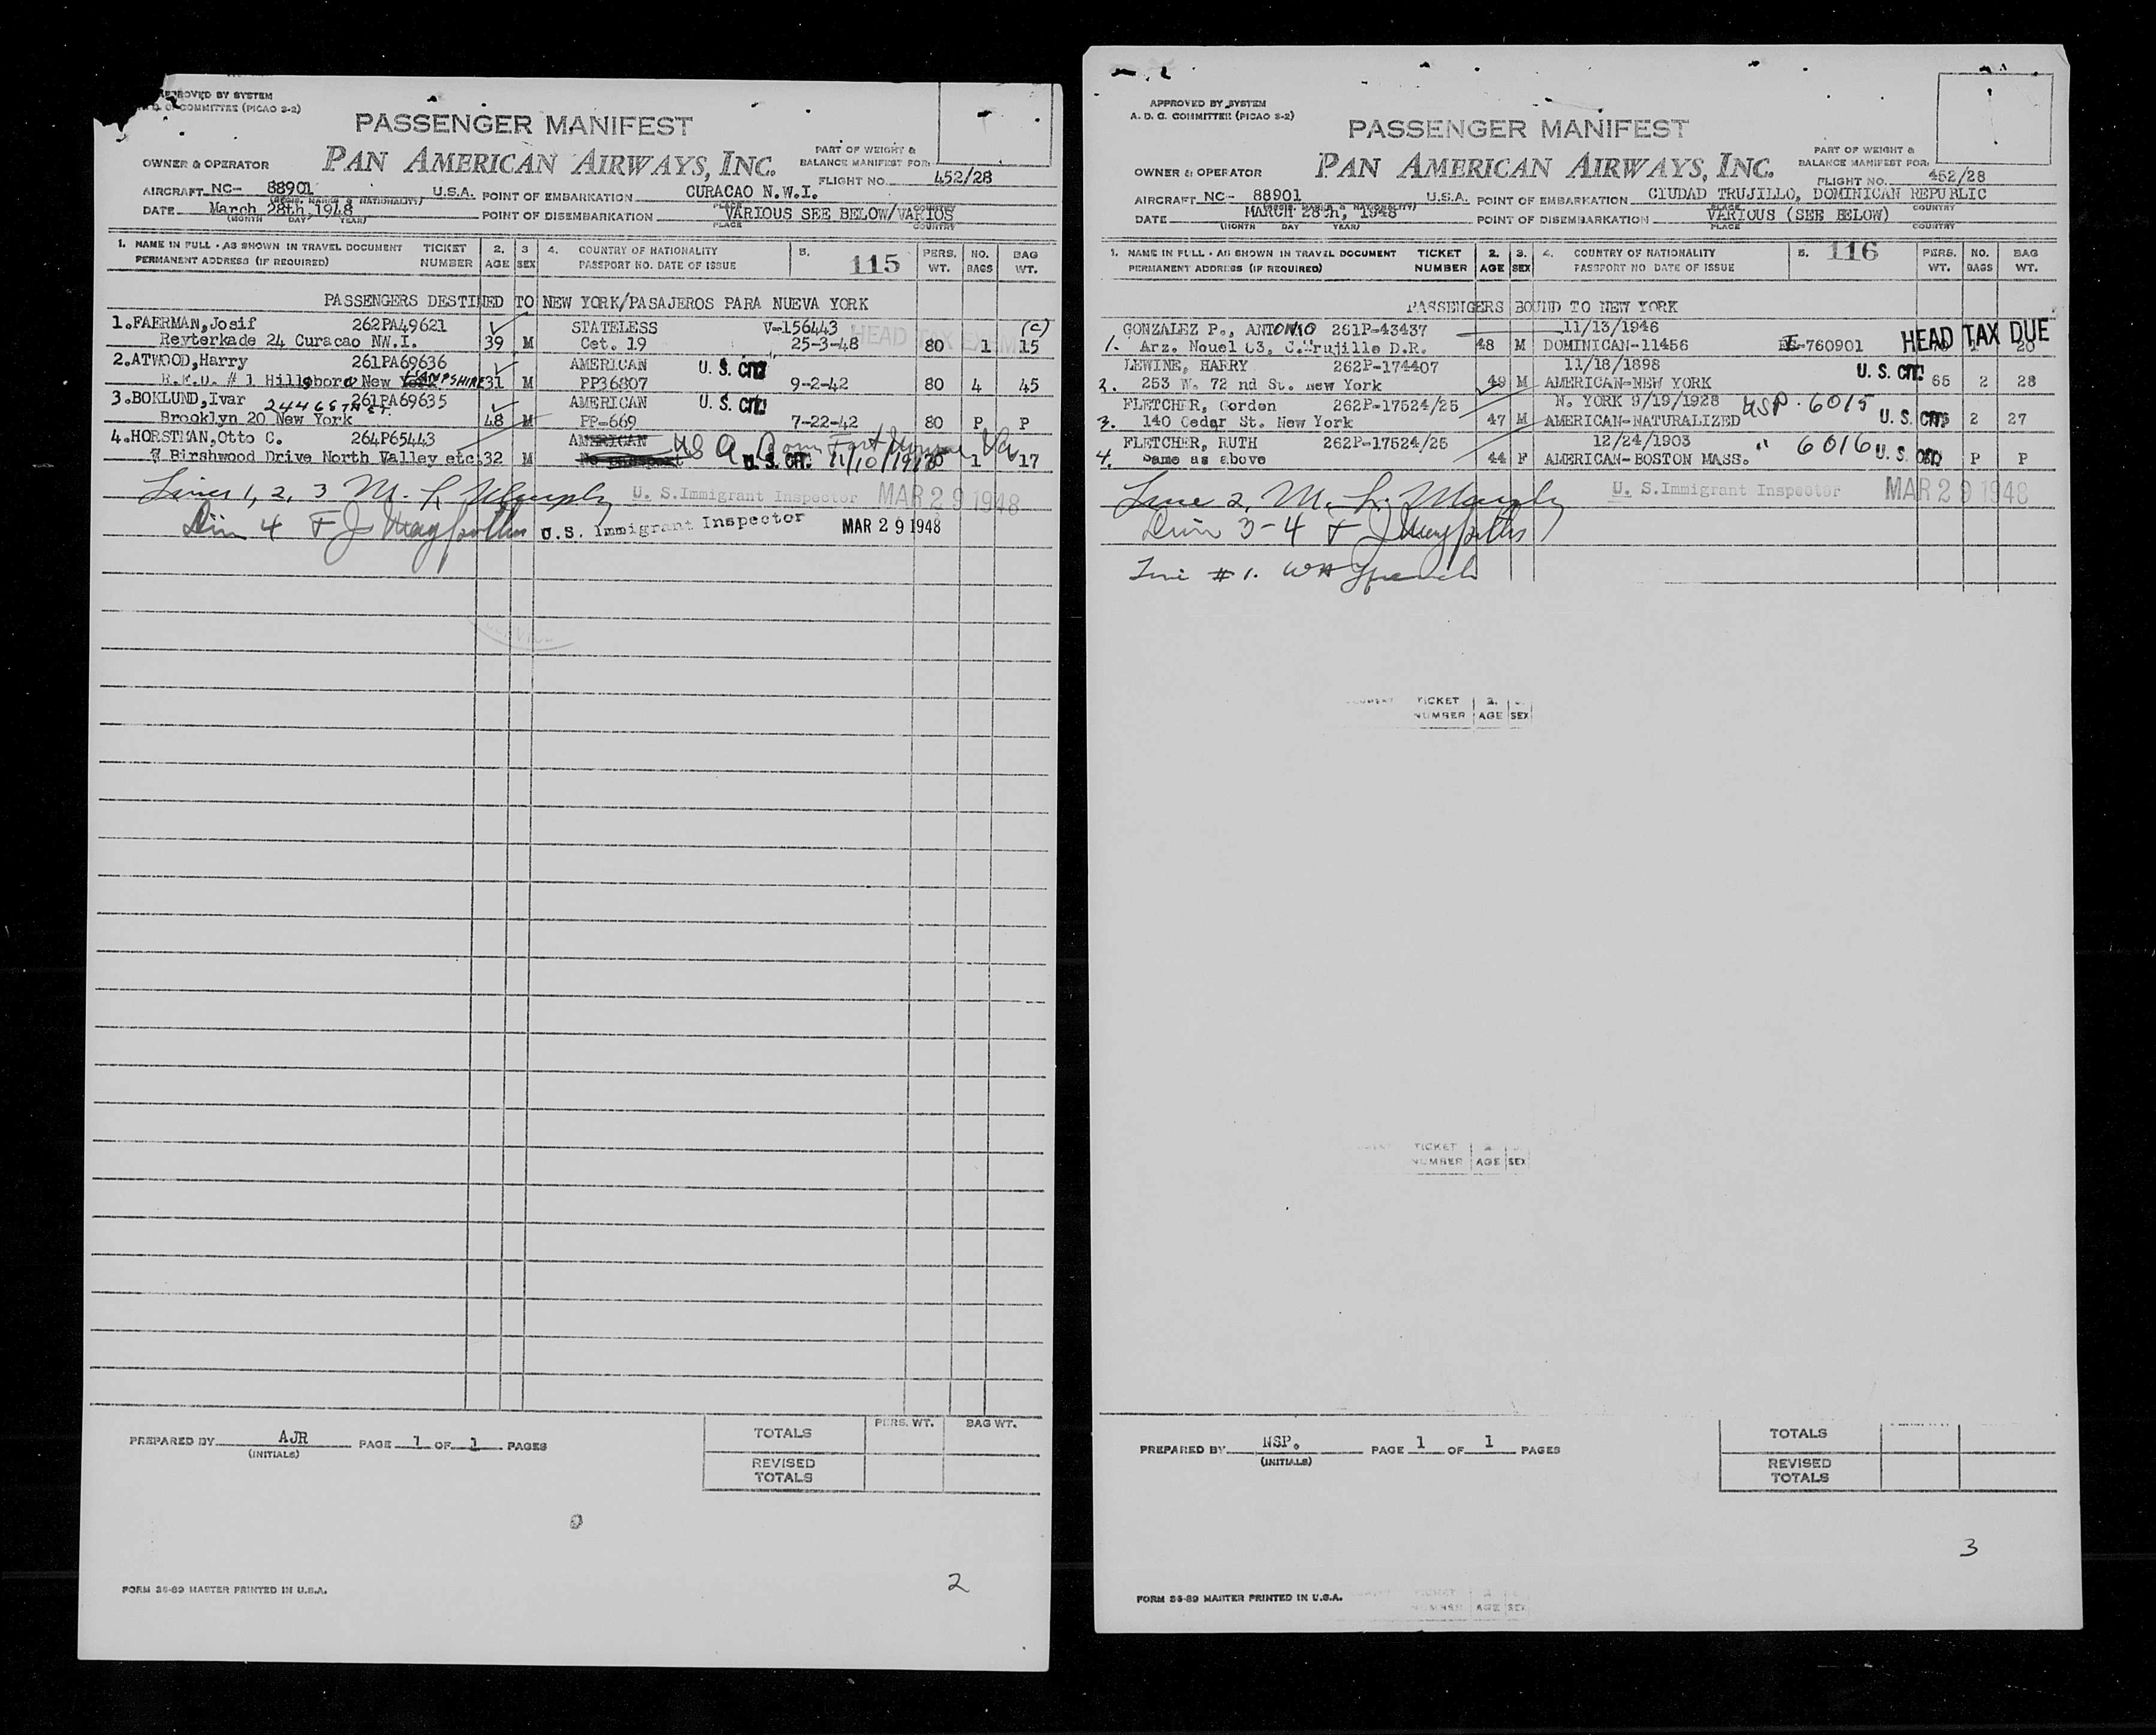 APPROVED BY SYSTEM
A. D. C. COMMITTEE (PICAO S-2)
PASSENGER MANIFEST
OWNER & OPERATOR PAN AMERICAN AIRWAYS, INC.
PART OF WEIGHT &
BALANCE MANIFEST FOR:
FLIGHT NO. 452/28
AIRCRAFT NC- 88901 U.S.A. POINT OF EMBARKATION CURACAO N.W.I.
(REGIS. MARKS & NATIONALITY) PLACE COUNTRY
DATE March 28th, 1948 POINT OF DISEMBARKATION VARIOUS SEE BELOW/VARIOS
(MONTH DAY YEAR) PLACE COUNTRY
1. NAME IN FULL - AS SHOWN IN TRAVEL DOCUMENT TICKET 2. 3 4. COUNTRY OF NATIONALITY 5. 115 PERS. NO. BAG
PERMANENT ADDRESS (IF REQUIRED) NUMBER AGE SEX PASSPORT NO. DATE OF ISSUE WT. BAGS WT.
PASSENGERS DESTINED TO NEW YORK/PASAJEROS PARA NUEVA YORK
1. FAERMAN, Josif 262PA49621 STATELESS V-156443 HEAD TAX EXEM (c)
Reyterkade 24 Curacao NW.I. 39 M Cet. 19 25-3-48 80 1 15
2. ATWOOD, Harry 261PA69636 AMERICAN U. S. CIT.
R.F.D. # 1 Hillsboro New York HAMPSHIRE 31 M PP36807 9-2-42 80 4 45
3. BOKLUND, Ivar 261PA69635 AMERICAN U. S. CIT.
244 65TH ST.
Brooklyn 20 New York 48 M PP-669 7-22-42 80 P P
4. HORSTMAN, Otto C. 264P65443 AMERICAN US A. Born Fort Monroe Va
7 Birshwood Drive North Valley etc. 32 M No passport U. S. CIT. 1 17
Lines 1, 2, 3 M. L. Murphy U. S. Immigrant Inspector MAR 29 1948
4 F J U.S. Immigrant Inspector MAR 29 1948
PREPARED BY AJR PAGE 1 OF 1 PAGES
(INITIALS)
PERS. WT. BAG WT.
TOTALS
REVISED
TOTALS
2
FORM 36-89 MASTER PRINTED IN U.S.A.
APPROVED BY SYSTEM
A. D. C. COMMITTEE (PICAO S-2)
PASSENGER MANIFEST
OWNER & OPERATOR PAN AMERICAN AIRWAYS, INC.
PART OF WEIGHT &
BALANCE MANIFEST FOR:
FLIGHT NO. 452/28
AIRCRAFT NC- 88901 U.S.A. POINT OF EMBARKATION CIUDAD TRUJILLO, DOMINICAN REPUBLIC
(REGIS. MARKS & NATIONALITY) PLACE COUNTRY
DATE MARCH 28th, 1948 POINT OF DISEMBARKATION VARIOUS (SEE BELOW)
(MONTH DAY YEAR) PLACE COUNTRY
1. NAME IN FULL - AS SHOWN IN TRAVEL DOCUMENT TICKET 2. 3. 4. COUNTRY OF NATIONALITY 5. 116 PERS. NO. BAG
PERMANENT ADDRESS (IF REQUIRED) NUMBER AGE SEX PASSPORT NO DATE OF ISSUE WT. BAGS WT.
PASSENGERS BOUND TO NEW YORK
GONZALEZ P., ANTONIO 261P-43437 11/13/1946 HEAD TAX DUE
1. Arz. Nouel 63, C.Trujillo D.R. 48 M DOMINICAN-11456 -760901 20
LEWINE, HARRY 262P-174407 11/18/1898 U. S. CIT.
2. 253 W. 72 nd St. New York 49 M AMERICAN-NEW YORK 65 2 28
FLETCHER, Gordon 262P-17524/25 N. YORK 9/19/1928 USP. 6015
3. 140 Cedar St. New York 47 M AMERICAN-NATURALIZED U. S. CIT. 2 27
FLETCHER, RUTH 262P-17524/25 12/24/1903 " 6016
4. Same as above 44 F AMERICAN-BOSTON MASS. U. S. P P
Line 2, M. L. Murphy U. S. Immigrant Inspector MAR 29 1948
3-4 F J
Line #1. WH
TICKET 2.
NUMBER AGE SEX
TICKET
NUMBER AGE SEX
PREPARED BY NSP. PAGE 1 OF 1 PAGES
(INITIALS)
TOTALS
REVISED
TOTALS
3
FORM 36-89 MASTER PRINTED IN U.S.A.